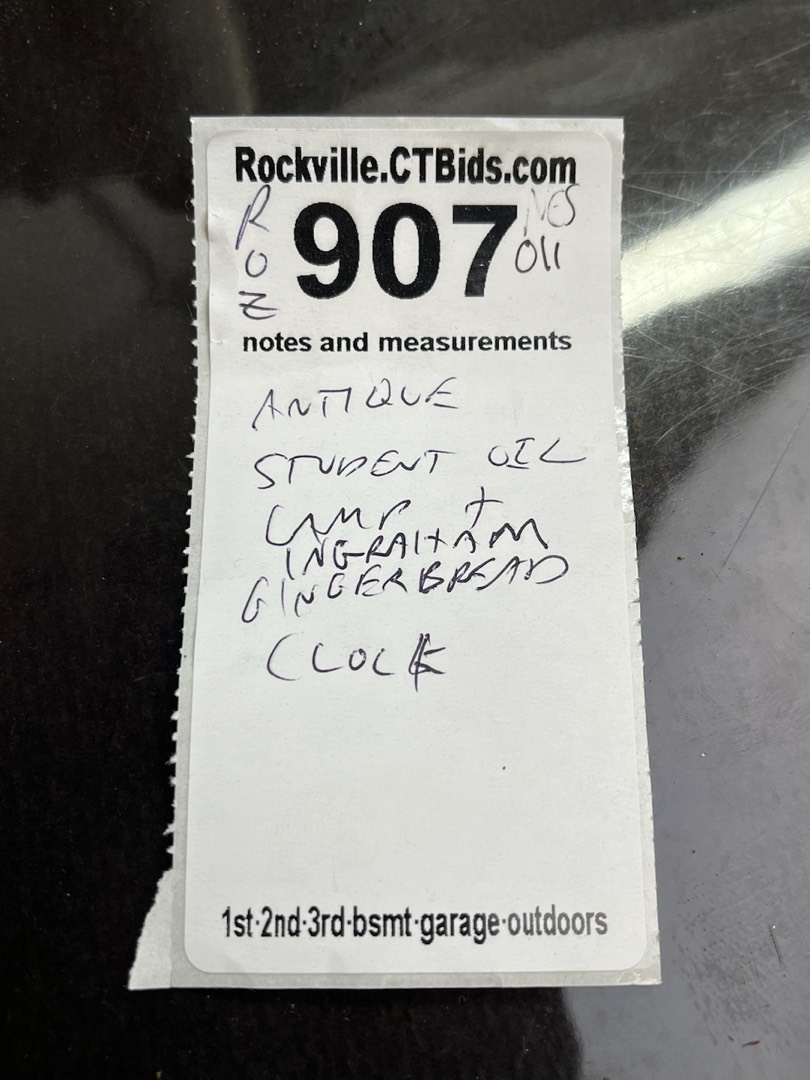 Rockville.CTBids.com
ROZ
907
NES
011
notes and measurements
ANTIQUE
STUDENT OIL
LAMP +
INGRAHAM
GINGERBREAD
CLOCK
1st·2nd·3rd·bsmt·garage·outdoors